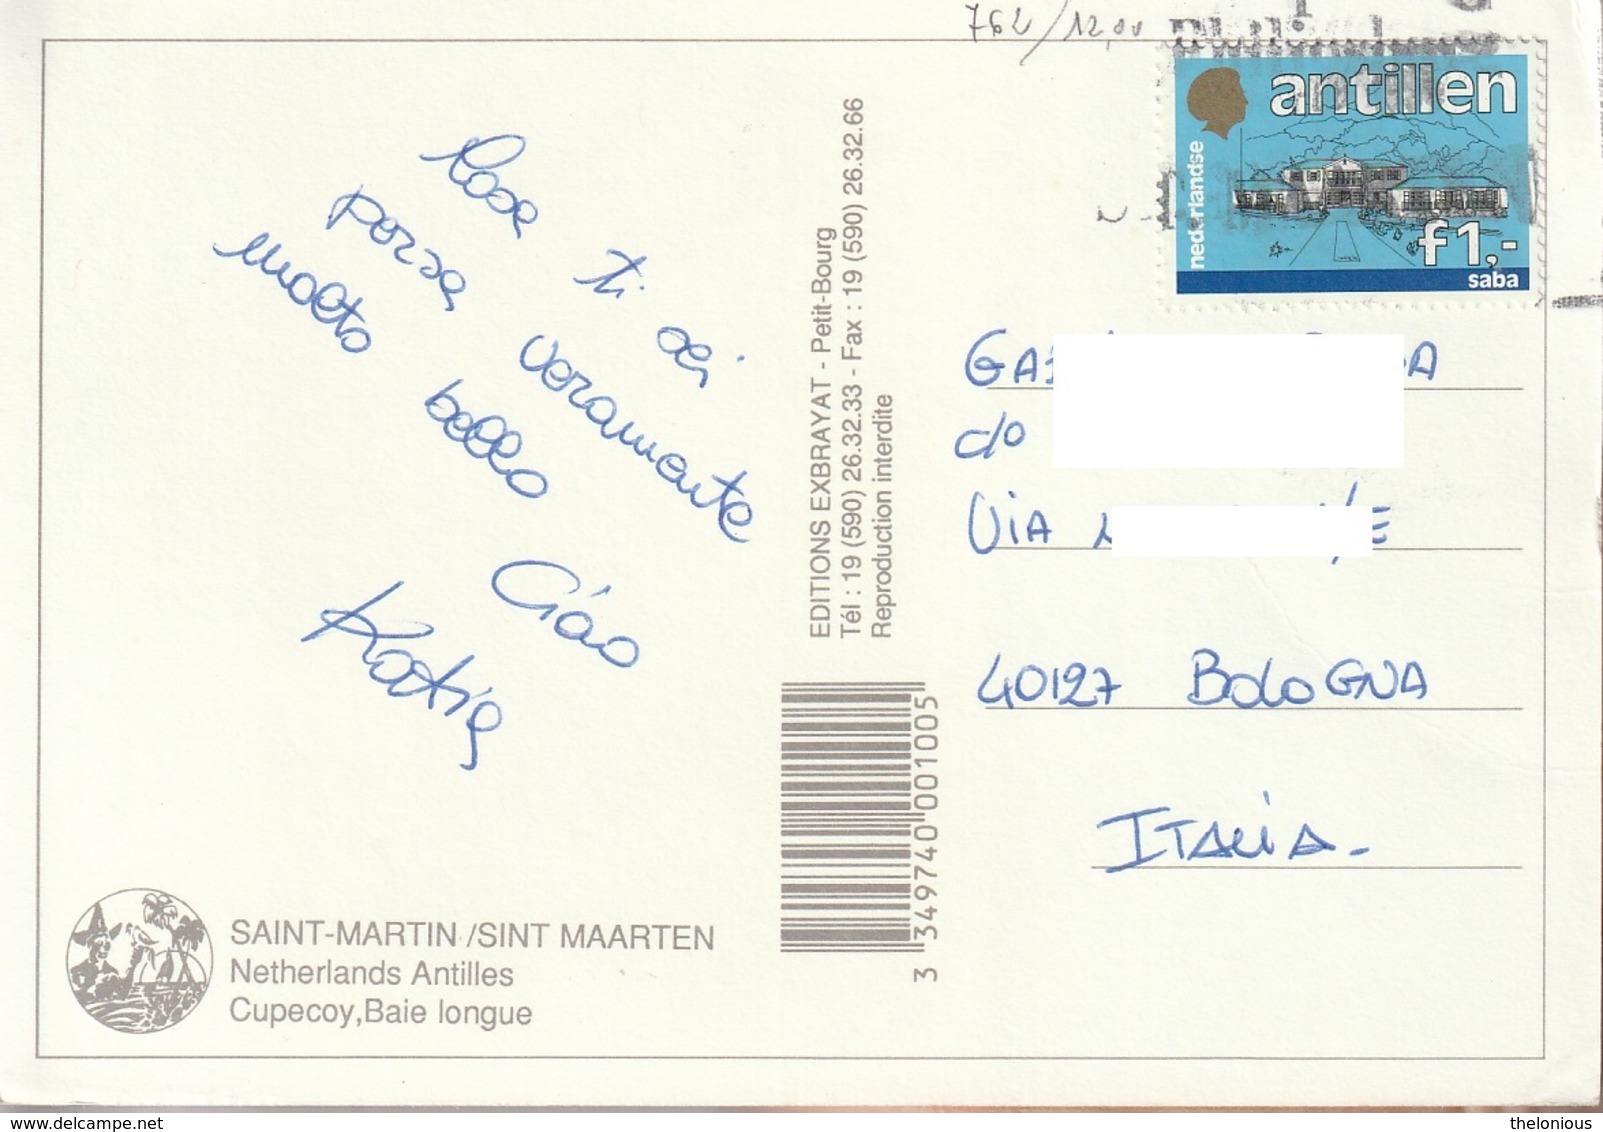 762/12,00
antillen
nederlandse
f1,-
saba
Cosa ti sei
persa veramente
molto bello
Ciao
Katia
EDITIONS EXBRAYAT - Petit-Bourg
Tél : 19 (590) 26.32.33 - Fax : 19 (590) 26.32.66
Reproduction interdite
3 349740 001005
c/o
VIA
40127 BOLOGNA
ITALIA-
SAINT-MARTIN /SINT MAARTEN
Netherlands Antilles
Cupecoy,Baie longue
www.delcampe.net
thelonious